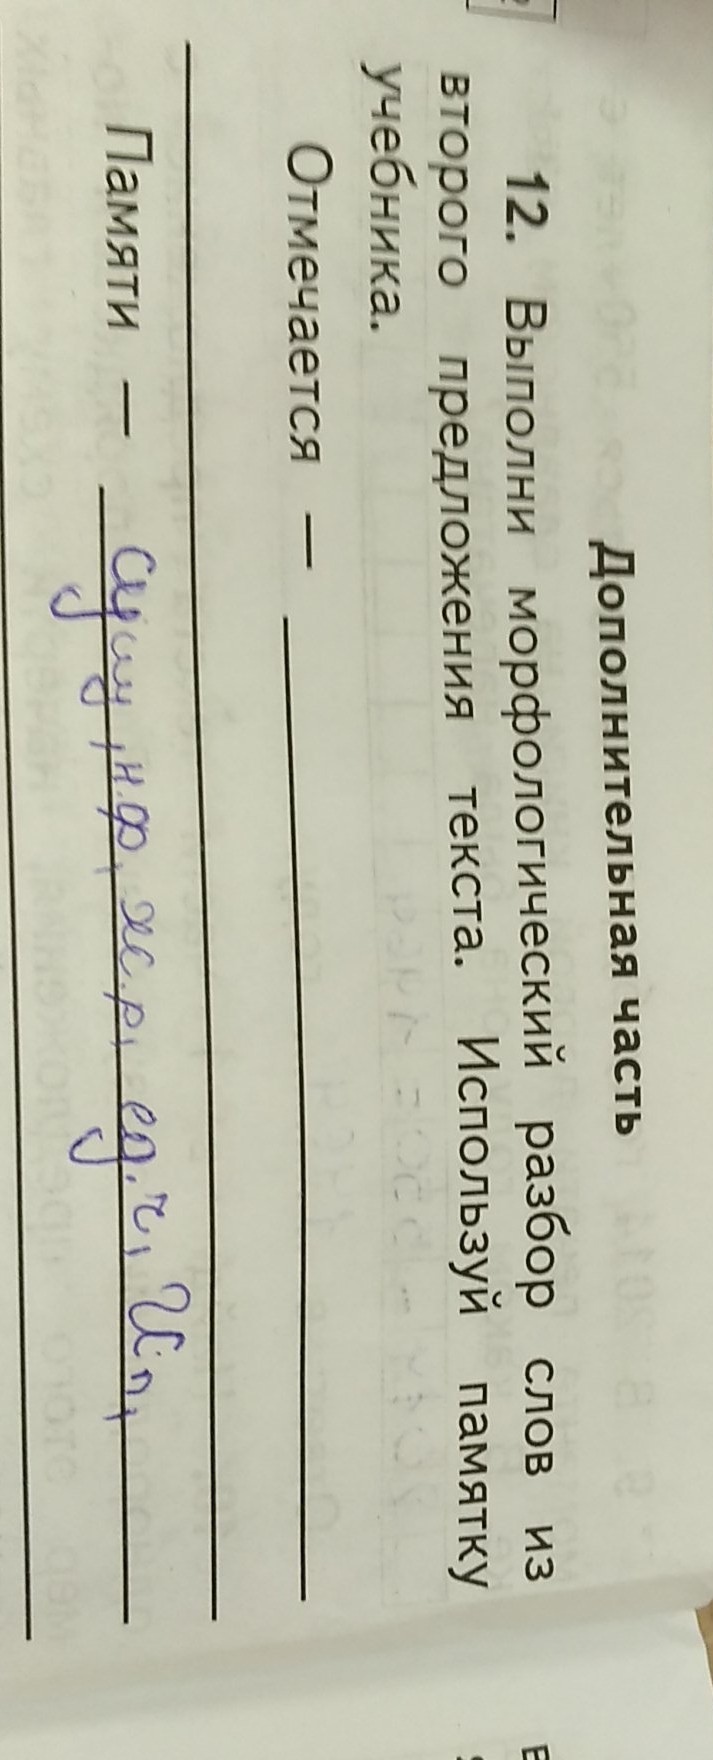 Дополнительная часть
12. Выполни морфологический разбор слов из
второго предложения текста. Используй памятку
учебника.
Отмечается —
Памяти — сущ, н.ф, ж.р, ед.ч, И.п,